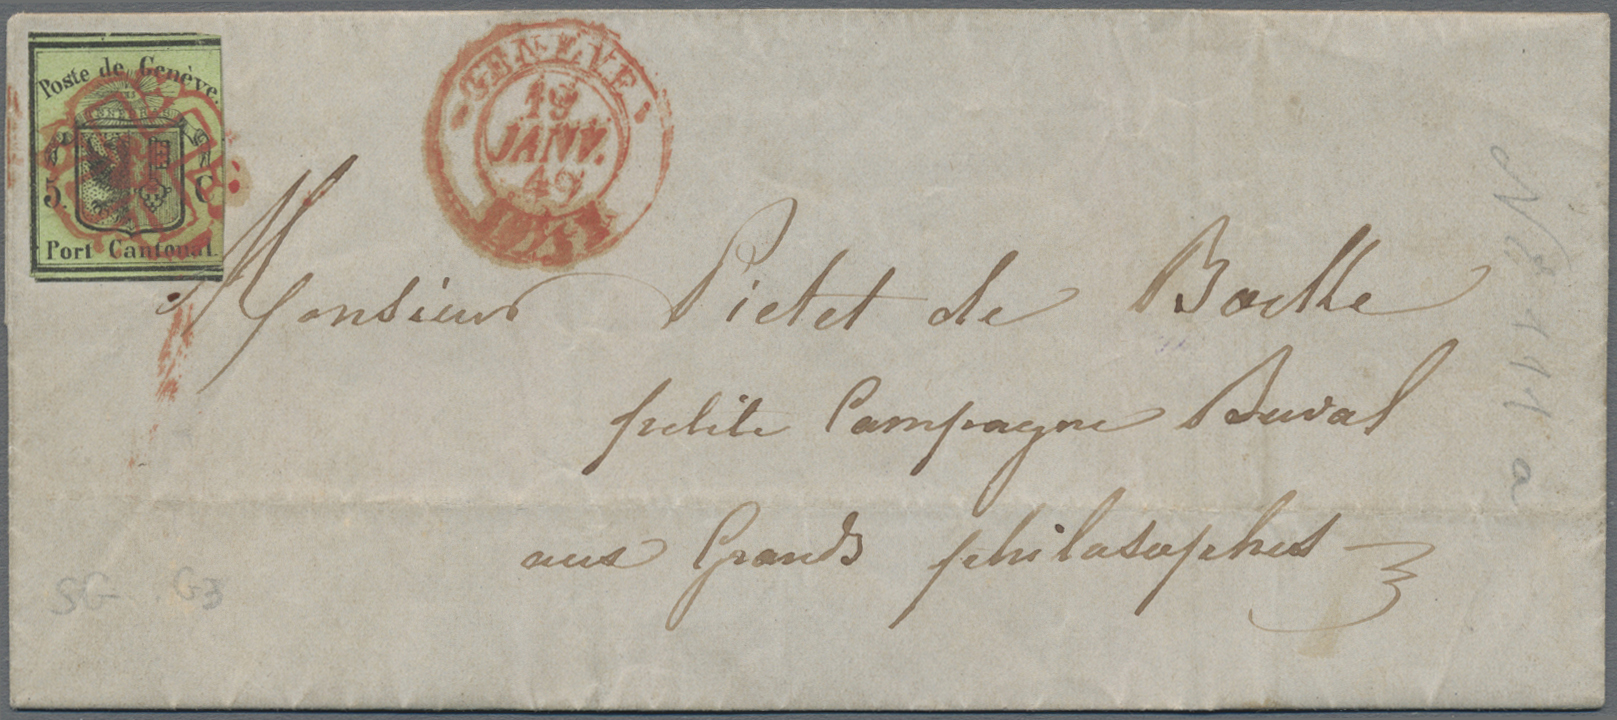 Poste de Genève.
5. C.
Port Cantonal.
GENEVE
19
JANV.
49
Monsieur Pictet de Bock
petite Campagne Duval
aux Grands philosophes
SG G3
No 111 a